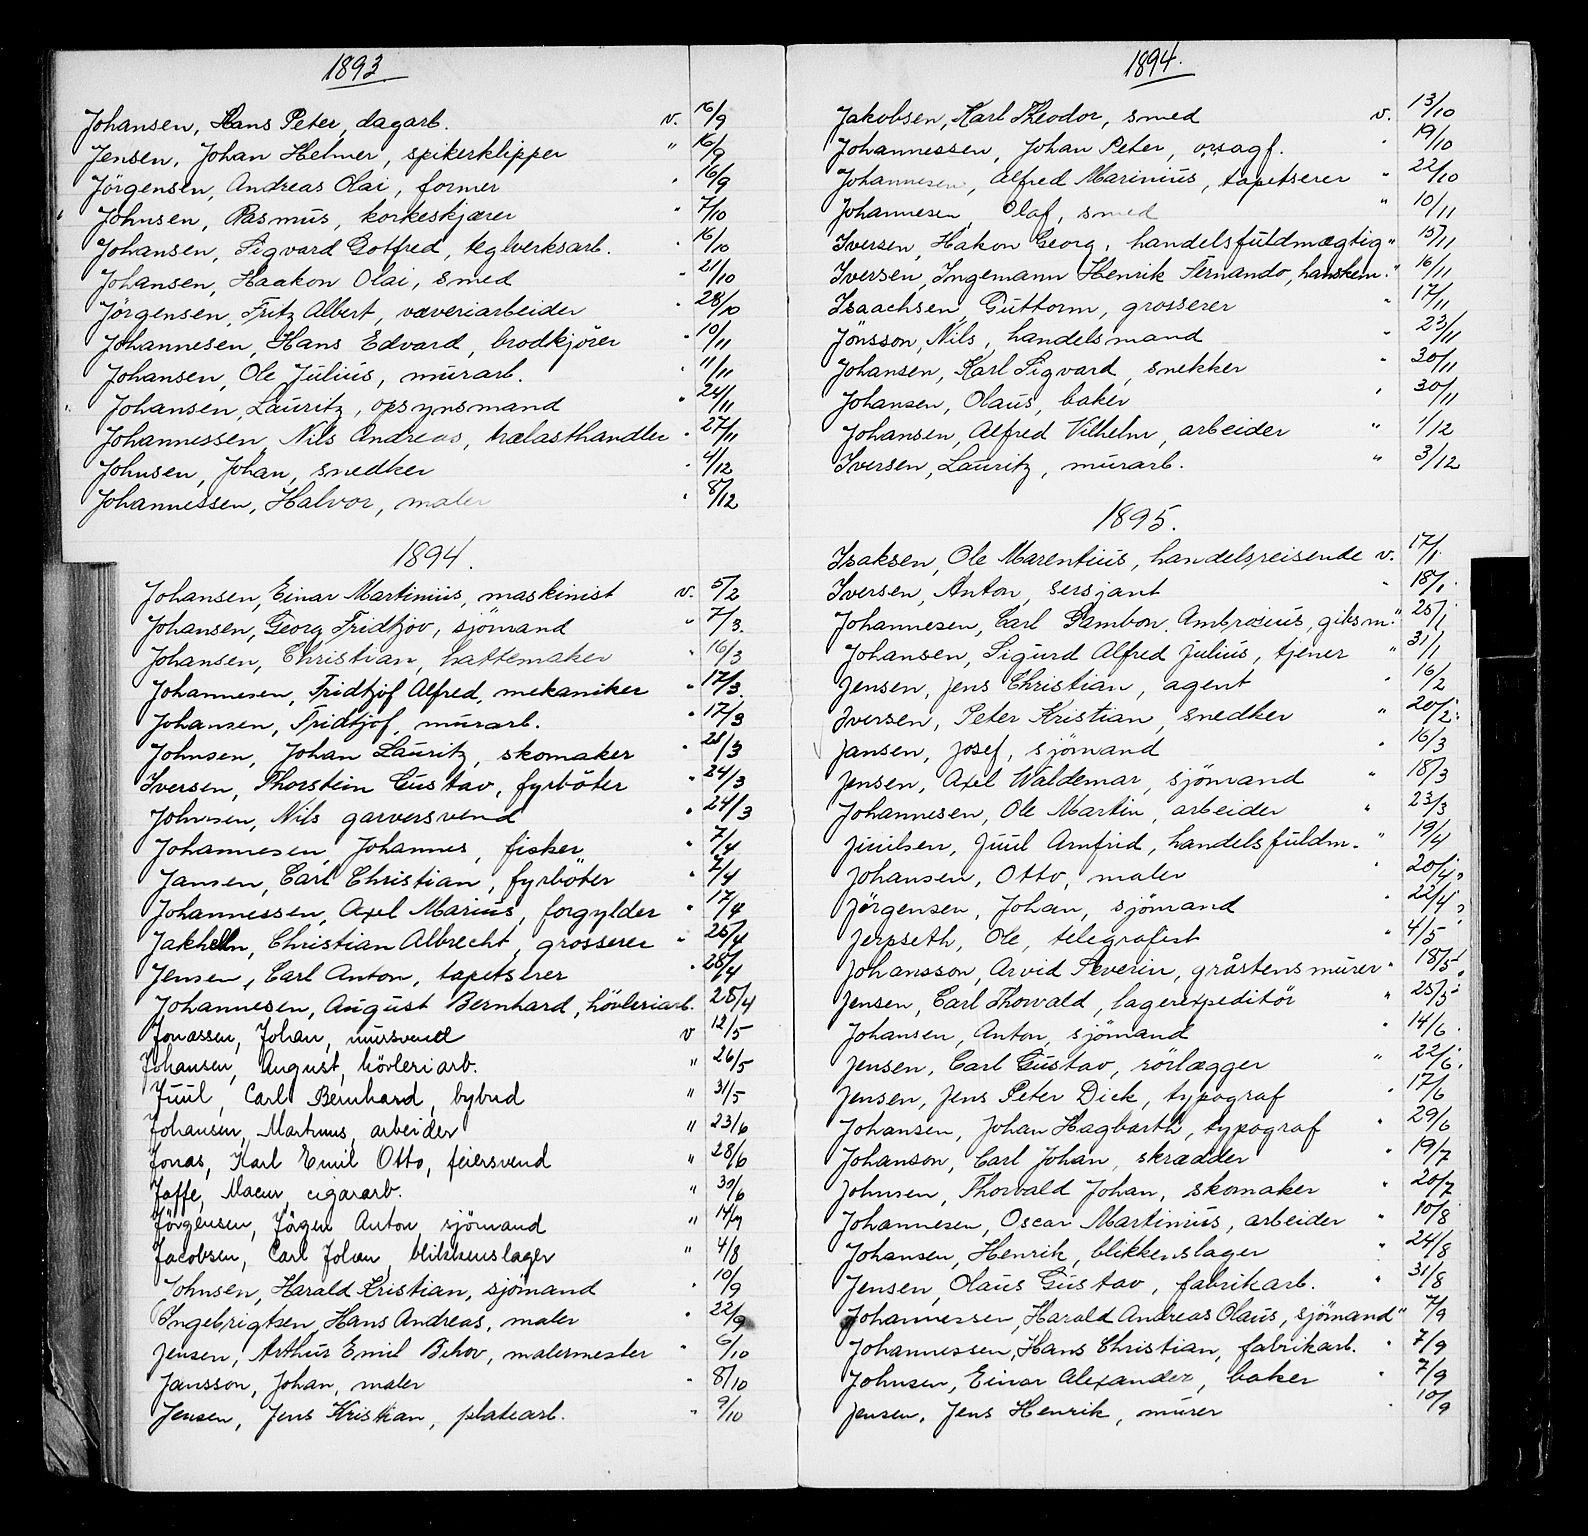 1893
Johansen, Hans Peter, dagarb. v. 16/9
Jensen, Johan Helmer, spikerklipper " 16/9
Jörgensen, Andreas Olai, former " 16/9
Johnsen, Rasmus, korkeskjærer " 7/10
Johansen, Sigvard Gotfred, teglverksarb. " 16/10
Johansen, Haakon Olai, smed " 21/10
Jörgensen, Fritz Albert, væveriarbeider " 28/10
Johannesen, Hans Edvard, brodkjörer " 10/11
Johansen, Ole Julius, murarb. " 11/11
Johansen, Lauritz, opsynsmand " 24/11
Johannessen, Nils Andreas, trælasthandler " 27/11
Johnsen, Johan, snedker " 4/12
Johannessen, Halvor, maler " 8/12
1894.
Johansen, Einar Martinius, maskinist v. 5/2
Johansen, Georg Fridtjov, sjömand " 7/3.
Johansen, Christian, hattemaker " 16/3
Johannesen, Fridtjof Alfred, mekaniker " 17/3.
Johansen, Fridtjof, murarb. " 17/3
Johnsen, Johan Lauritz, skomaker " 23/3
Iversen, Thorstein Gustav, fyrböter " 24/3
Johnsen, Nils garversvend " 24/3
Johannesen, Johannes, fisker " 7/4
Jansen, Carl Christian, fyrböter " 7/4
Johannessen, Axel Marius, forgylder " 17/4
Jakhelln, Christian Albrecht, grosserer " 25/4
Jensen, Carl Anton, tapetserer " 28/4
Johannesen, August Bernhard, hövleriarb. " 28/4
Jonassen, Johan, mursvend v 12/5
Johansen, August, hövleriarb. " 26/5
Juul, Carl Bernhard, bybud " 31/5
Johansen, Martinus, arbeider " 23/6
Jonas, Karl Emil Otto, feiersvend " 28/6
Jaffe, cigararb. " 30/6
Jörgensen, Jörgen Anton sjömand " 14/7
Jacobsen, Carl Johan, blikkenslager " 4/8
Johnsen, Harald Kristian, sjömand " 10/9
Ingebrigtsen, Hans Andreas, maler " 22/9
Jensen, Arthur Emil Bihov, malermester " 6/10
Jansson, Johan, maler " 8/10
Jensen, Jens Kristian, platearb. " 9/10
1894.
Jakobsen, Karl Theodor, smed v. 13/10
Johannessen, Johan Peter, " 19/10
Johannesen, Alfred Marinius, tapetserer " 22/10
Johannesen, Olaf, smed " 10/11
Iversen, Hakon Georg, handelsfuldmægtig " 15/11
Iversen, Ingemann Henrik Fernando, hanskem. " 16/11
Isaachsen, Guttorm, grosserer " 17/11
Jönsson, Nils, handelsmand " 23/11
Johansen, Karl Sigvard, snekker " 30/11
Johansen, Olaus, baker " 30/11
Johansen, Alfred Vilhelm, arbeider " 1/12
Iversen, Lauritz, murarb. " 3/12
1895.
Isaksen, Ole Marentius, handelsreisende v. 17/1
Iversen, Anton, sersjant " 18/1
Johannesen, Carl Pambon. Ambrosius, gibsm. " 25/1
Johansen, Sigurd Alfred Julius, tjener " 31/1
Jensen, Jens Christian, agent " 16/2
Iversen, Peter Kristian, snedker " 20/2.
Jansen, Josef, sjömand " 16/3
Jensen, Axel Waldemar, sjömand " 18/3
Johannesen, Ole Martin, arbeider " 23/3
Juulsen, Juul Arnfred, handelsfuldm. " 19/4
Johansen, Otto, maler " 20/4.
Jörgensen, Johan, sjömand " 22/4.
Jerpseth, Ole, telegrafist " 4/5
Johansson, Arvid Severin, gråstensmurer " 18/5.
Jensen, Carl Thorvald, lagerexpeditör " 25/5
Johansen, Anton, sjömand " 14/6.
Jensen, Carl Gustav, rörlægger " 22/6.
Jensen, Jens Peter Dick, typograf " 17/6
Johansen, Johan Hagbarth, typograf " 29/6
Johanson, Carl Johan, skrædder " 19/7
Johnsen, Thorvald Johan, skomaker " 20/7
Johannesen, Oscar Martinius, arbeider " 10/8
Johansen, Henrik, blikkenslager " 24/8
Jensen, Olaus Gustav, fabrikarb. " 31/8
Johannessen, Harald Andreas Olaus, sjömand " 7/9
Johannessen, Hans Christian, fabrikarb. " 7/9
Johnsen, Einar Alexander, baker " 7/9
Jensen, Jens Henrik, murer " 10/9